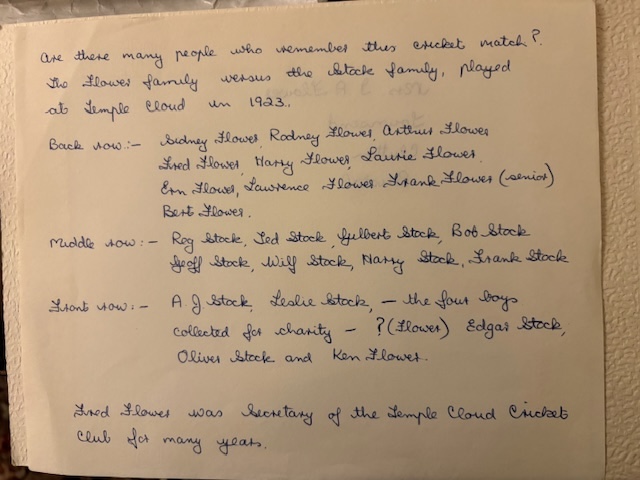 Are there many people who remember this cricket match?
The Flower family versus the Stock family, played
at Temple Cloud in 1923.
Back row:- Sidney Flower, Rodney Flower, Arthur Flower
Fred Flower, Harry Flower, Laurie Flower.
Ern Flower, Lawrence Flower. Frank Flower (senior)
Bert Flower.
Middle row:- Reg Stock, Ted Stock, Gilbert Stock, Bob Stock
Geoff Stock, Wilf Stock, Harry Stock, Frank Stock
Front row:- A. J. Stock, Leslie Stock, - the four boys
collected for charity - ?(Flower) Edgar Stock,
Oliver Stock and Ken Flower.
Fred Flower was Secretary of the Temple Cloud Cricket
Club for many years.